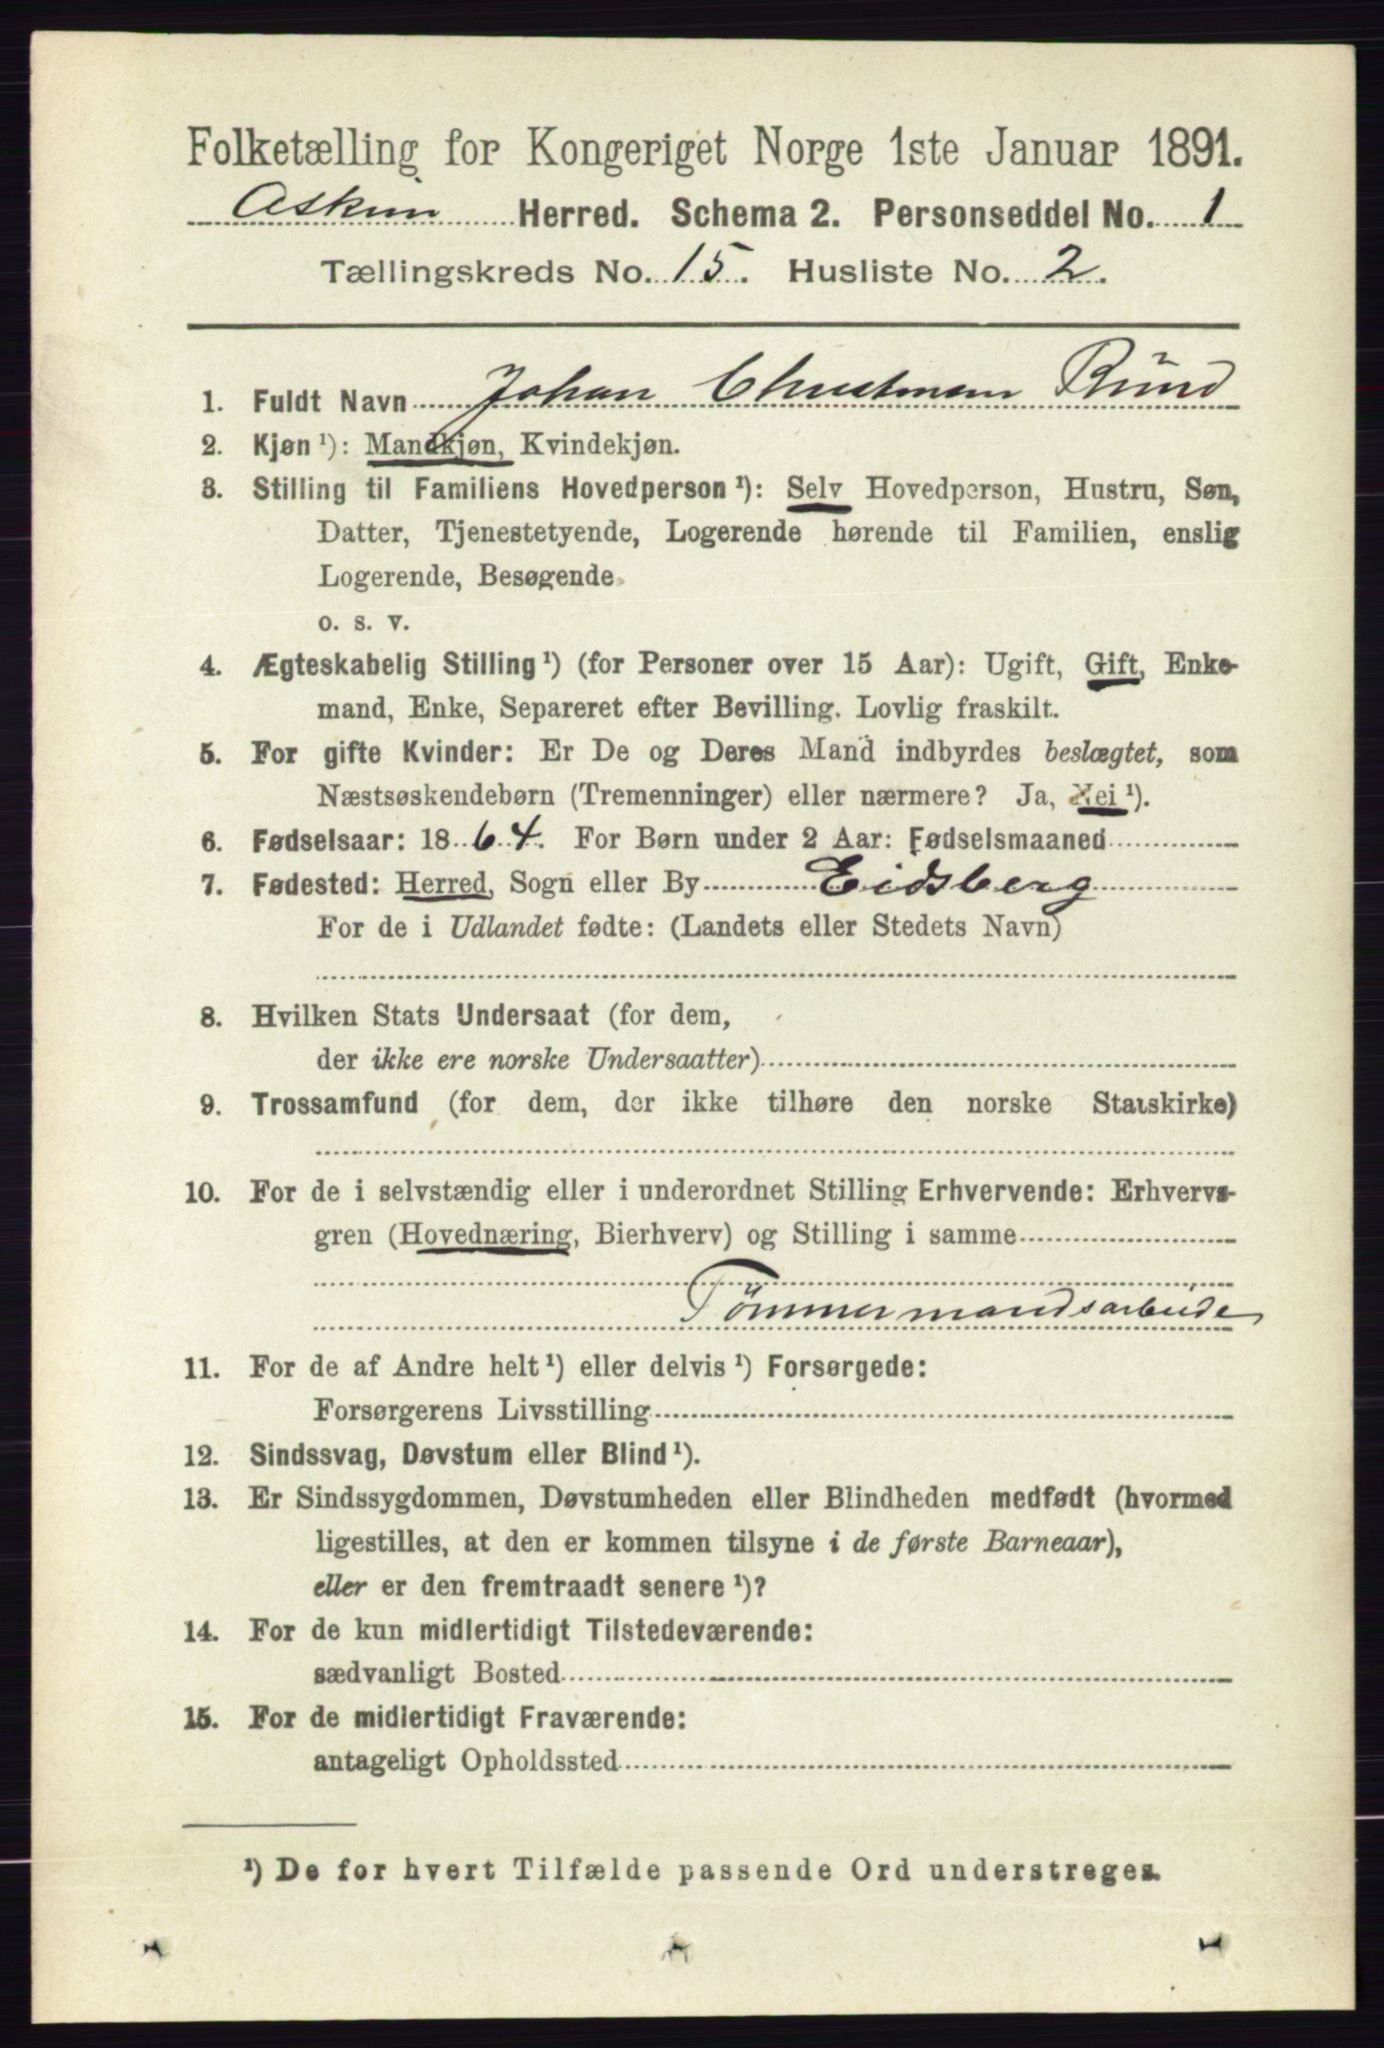 Folketælling for Kongeriget Norge 1ste Januar 1891.
Askim Herred. Schema 2. Personseddel No. 1
Tællingskreds No. 15. Husliste No. 2.
1. Fuldt Navn Johan Christensen
2. Kjøn ¹): Mandkjøn, Kvindekjøn.
3. Stilling til Familiens Hovedperson ¹): Selv Hovedperson, Hustru, Søn,
Datter, Tjenestetyende, Logerende hørende til Familien, enslig
Logerende, Besøgende
o. s. v.
4. Ægteskabelig Stilling ¹) (for Personer over 15 Aar): Ugift, Gift, Enke-
mand, Enke, Separeret efter Bevilling. Lovlig fraskilt.
5. For gifte Kvinder: Er De og Deres Mand indbyrdes beslægtet, som
Næstsøskendebørn (Tremenninger) eller nærmere? Ja, Nei ¹).
6. Fødselsaar: 1864. For Børn under 2 Aar: Fødselsmaaned
7. Fødested: Herred, Sogn eller By Eidsberg
For de i Udlandet fødte: (Landets eller Stedets Navn)
8. Hvilken Stats Undersaat (for dem,
der ikke ere norske Undersaatter)
9. Trossamfund (for dem, der ikke tilhøre den norske Statskirke)
10. For de i selvstændig eller i underordnet Stilling Erhvervende: Erhvervs-
gren (Hovednæring, Bierhverv) og Stilling i samme
Tömmermandsarbeide
11. For de af Andre helt ¹) eller delvis ¹) Forsørgede:
Forsørgerens Livsstilling
12. Sindssvag, Døvstum eller Blind ¹).
13. Er Sindssygdommen, Døvstumheden eller Blindheden medfødt (hvormed
ligestilles, at den er kommen tilsyne i de første Barneaar),
eller er den fremtraadt senere ¹)?
14. For de kun midlertidigt Tilstedeværende:
sædvanligt Bosted
15. For de midlertidigt Fraværende:
antageligt Opholdssted
¹) De for hvert Tilfælde passende Ord understreges.